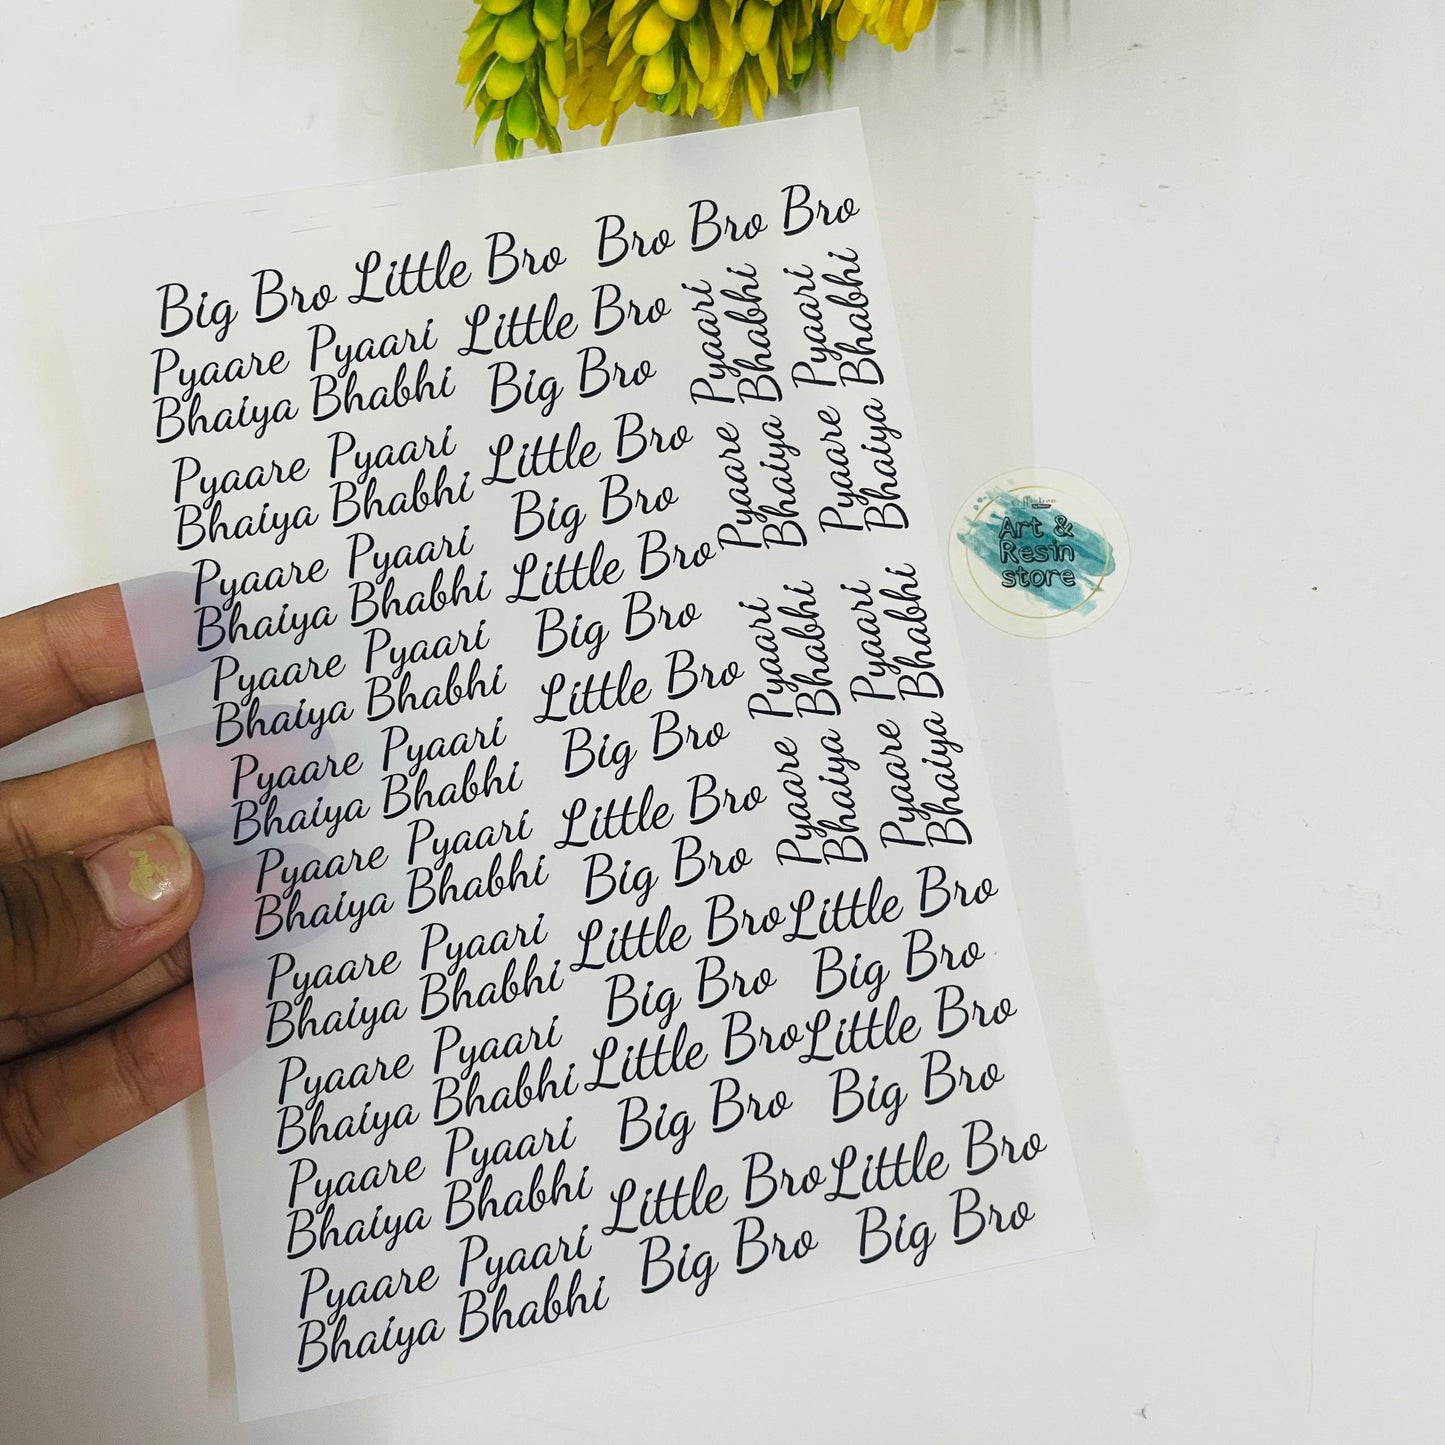 Big Bro Little Bro Bro Bro Bro
Pyaare Pyaari Little Bro
Bhaiya Bhabhi Big Bro
Pyaare Pyaari Little Bro
Bhaiya Bhabhi Big Bro
Pyaare Pyaari Little Bro
Bhaiya Bhabhi Big Bro
Pyaare Pyaari Little Bro
Bhaiya Bhabhi Big Bro
Pyaare Pyaari Little Bro
Bhaiya Bhabhi Big Bro
Pyaare Pyaari Little Bro Little Bro
Bhaiya Bhabhi Big Bro Big Bro
Pyaare Pyaari Little Bro Little Bro
Bhaiya Bhabhi Big Bro Big Bro
Pyaare Pyaari Little Bro Little Bro
Bhaiya Bhabhi Big Bro Big Bro
Pyaare Pyaari
Bhaiya Bhabhi
Pyaare Pyaari
Bhaiya Bhabhi
Pyaare Pyaari
Bhaiya Bhabhi
Pyaare Pyaari
Bhaiya Bhabhi
Pyaare Pyaari
Bhaiya Bhabhi
Pyaare Pyaari
Bhaiya Bhabhi
Art &
Resin
store